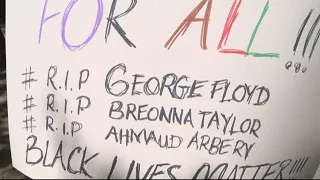 FOR ALL!!!
# R.I.P GEORGE FLOYD
# R.I.P BREONNA TAYLOR
# R.I.P AHMAUD ARBERY
BLACK LIVES MATTER!!!!